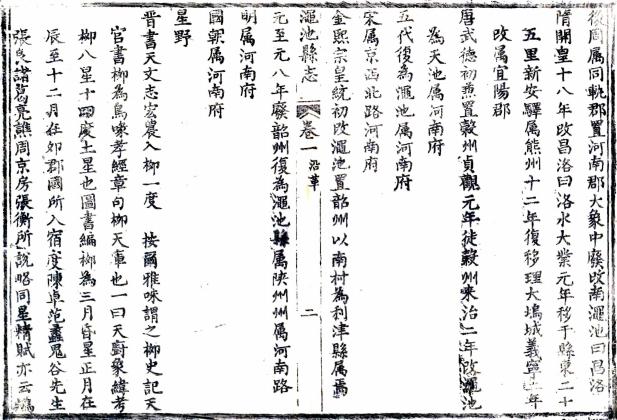 後周属同軌郡置河南郡大象中廢改南澠池曰昌洛
隋開皇十八年改昌洛曰洛水大業元年移于縣東二十
五里新安驛属熊州十二年復移理大塢城義寧二年
改属宜陽郡
唐武德初兼置穀州貞觀元年徒穀州来治二年改澠池
為天池属河南府
五代復為澠池属河南府
宋属京西北路河南府
金熙宗皇統初改澠池置韶州以南村為利津縣属焉
澠池縣志 卷一 沿革 二
元至元八年廢韶州復為澠池縣属陜州州属河南路
明属河南府
國朝属河南府
星野
晋書天文志宏農入柳一度 按爾雅咮謂之柳史記天
官書柳為鳥喙孝經章句柳天庫也一曰天廚象緯考
柳八星十四度土星也圖書編柳為三月昏星正月在
辰至十二月在卯郡國所入宿度陳卓范蠡鬼谷先生
張良諸葛亮譙周京房張衡所說略同星精賦亦云